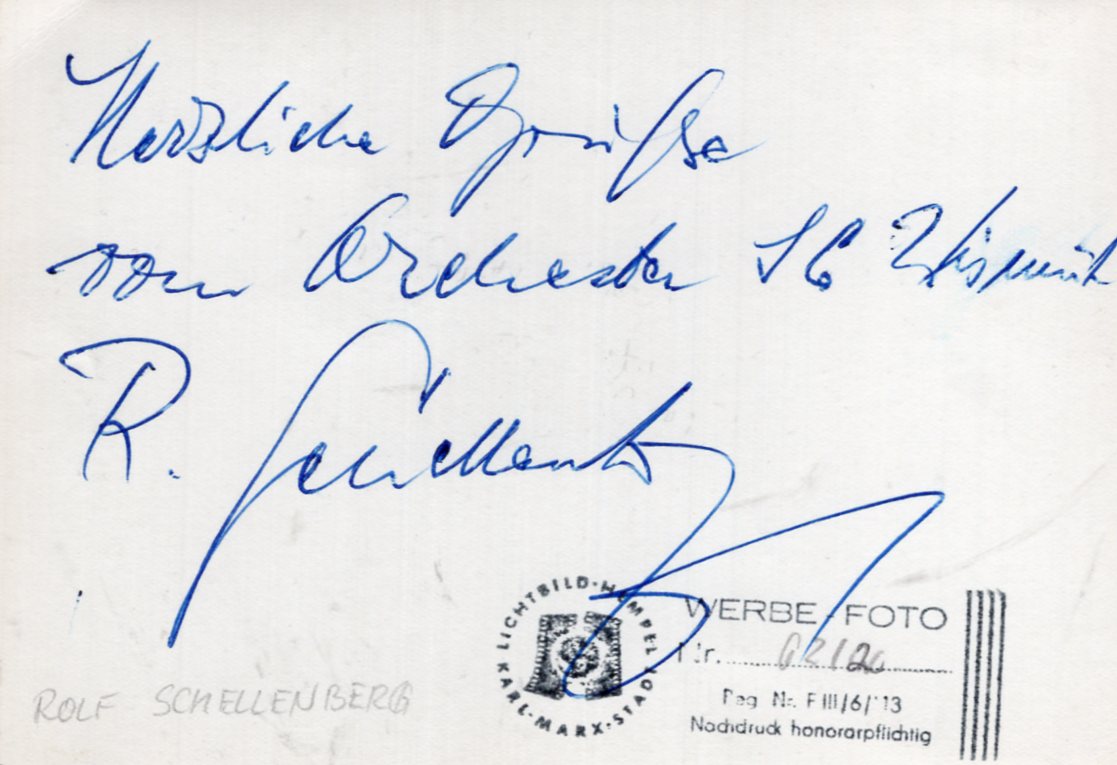 Herzliche Grüße
vom Orchester SG Wismut
R. Schellenberg
LICHTBILD-HEMPEL KARL-MARX-STADT
WERBE-FOTO
Nr.
Reg. Nr. F III/6/113
Nachdruck honorarpflichtig
ROLF SCHELLENBERG